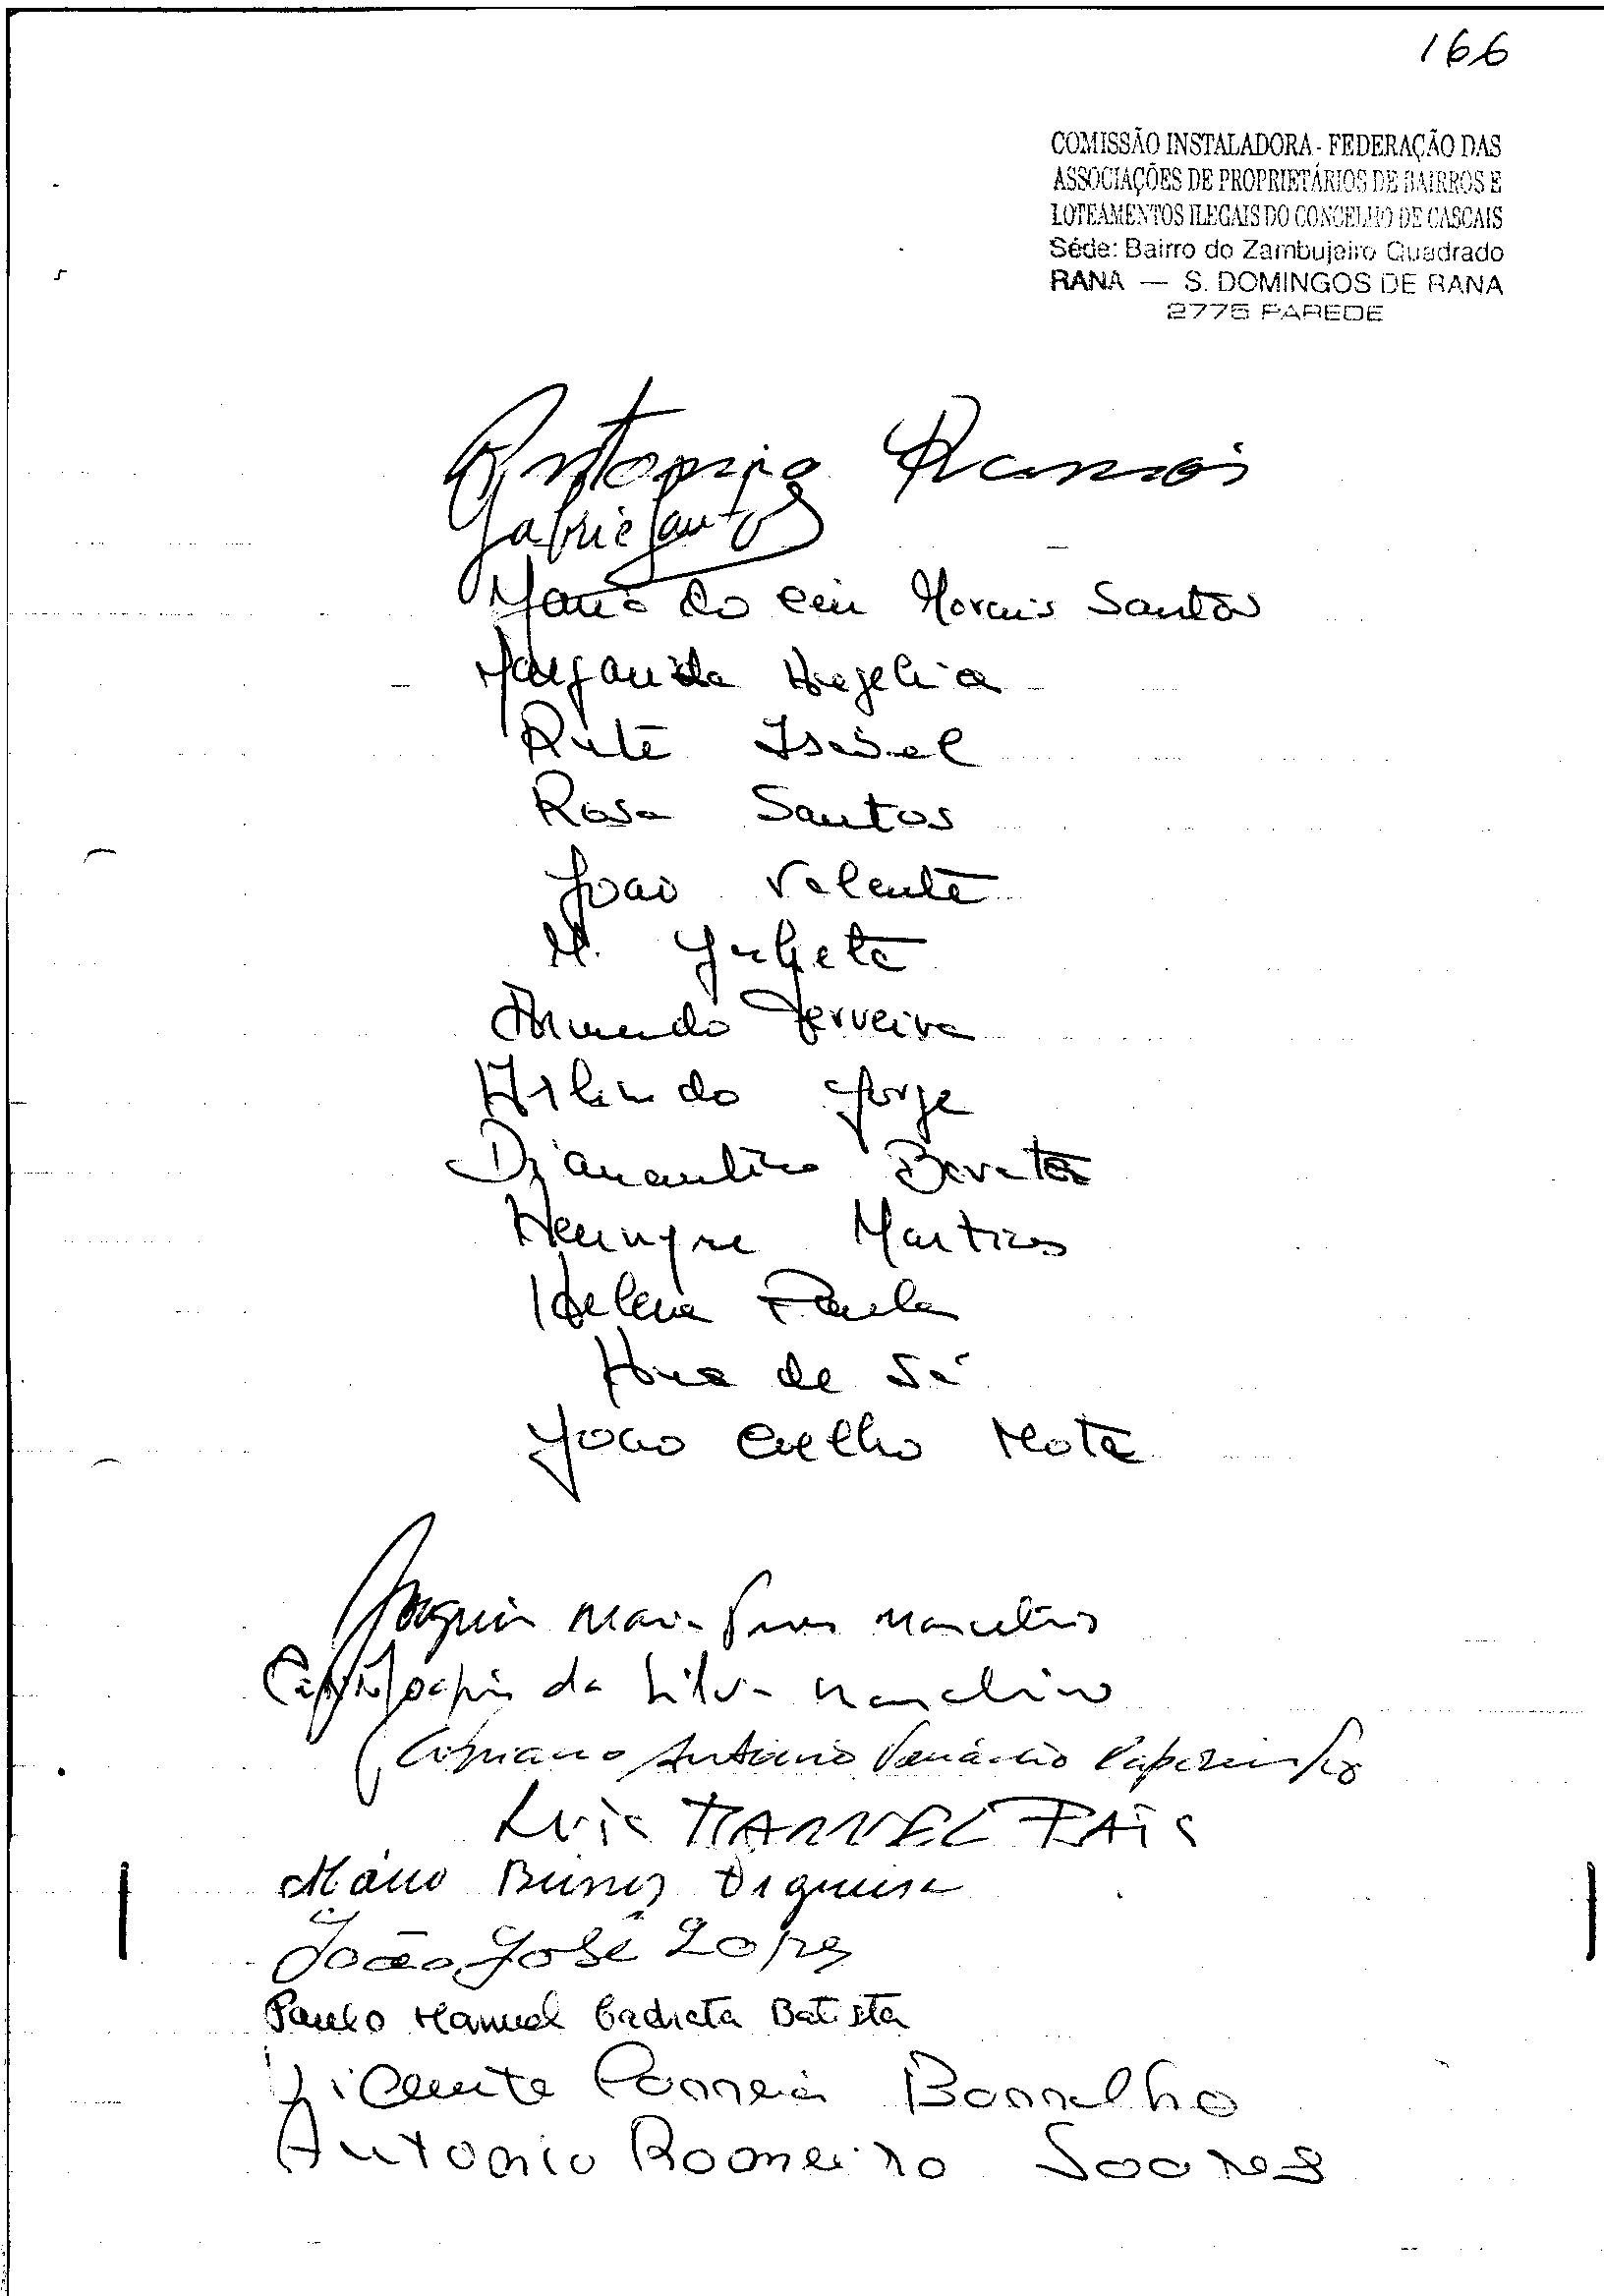 166
COMISSÃO INSTALADORA - FEDERAÇÃO DAS
ASSOCIAÇÕES DE PROPRIETÁRIOS DE BAIRROS E
LOTEAMENTOS ILEGAIS DO CONCELHO DE CASCAIS
Séde: Bairro do Zambujeiro Quadrado
RANA — S. DOMINGOS DE RANA
2775 PAREDE
Antonio Ramos
Gabriel Santos
Maria do Céu Morais Santos
Margarida Angelica
Rute Isabel
Rosa Santos
Joao Valente
M. Julieta
Armando Ferreira
Arlindo Jorge
Diamantino Barata
Henrique Martins
Helena Paula
Ana de Sá
Joao Coelho Mota
Joaquim Maria Marcelino
Joaquim da Silva Marcelino
Cipriano Antonio Venâncio
Luis MANUEL PAIS
Mário
João José Lopes
Paulo Manuel Batista
Vicente Correia Borralho
Antonio Romeiro Soares